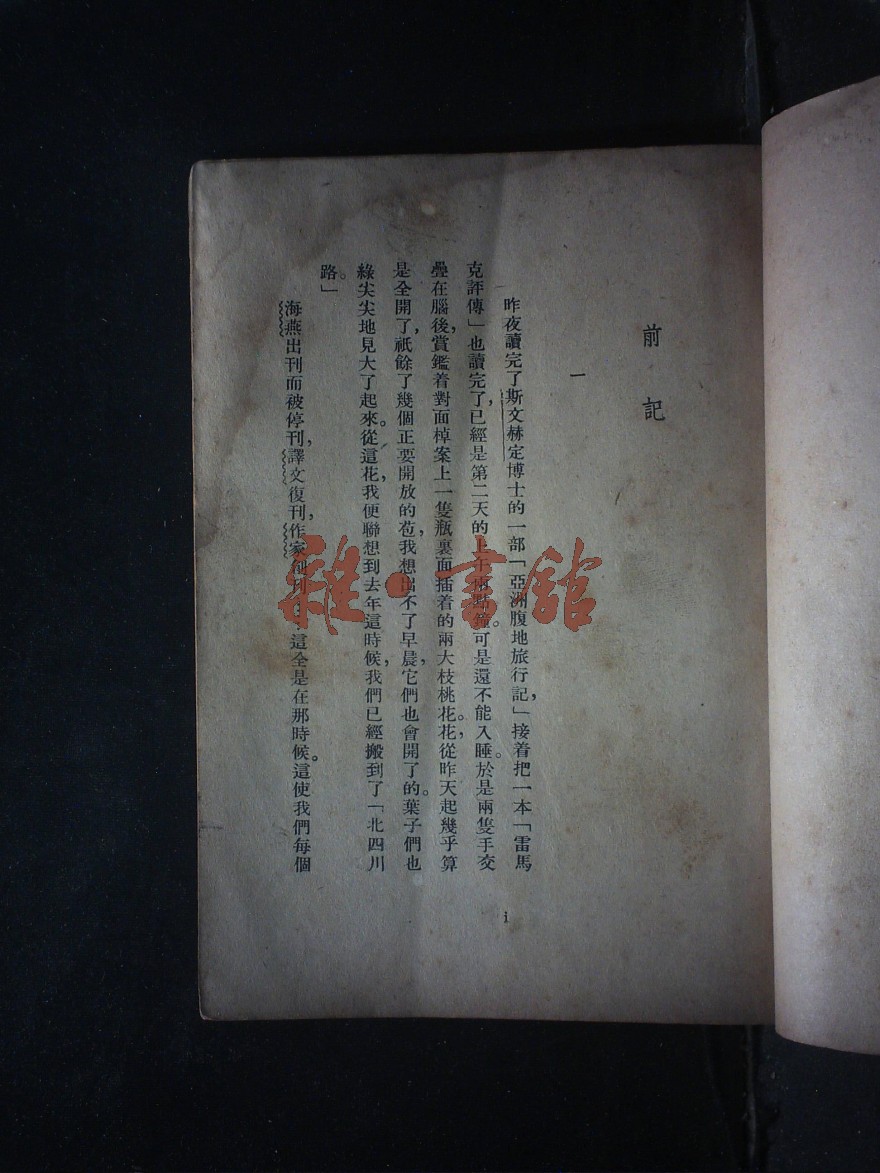 前記
一
昨夜讀完了斯文赫定博士的一部「亞洲腹地旅行記，」接着把一本「雷馬
克評傳」也讀完了，已經是第二天的上午兩點鐘。可是還不能入睡。於是兩隻手交
疊在腦後，賞鑑着對面棹案上一隻瓶裏面插着的兩大枝桃花。花，從昨天起幾乎算
是全開了，祇餘了幾個正要開放的苞，我想出不了早晨，它們也會開了的。葉子們也
綠尖尖地見大了起來。從這花，我便聯想到去年這時候，我們已經搬到了「北四川
路。」
海燕出刊而被停刊，譯文復刊，作家創刊……這全是在那時候。這使我們每個
i
雜·書館